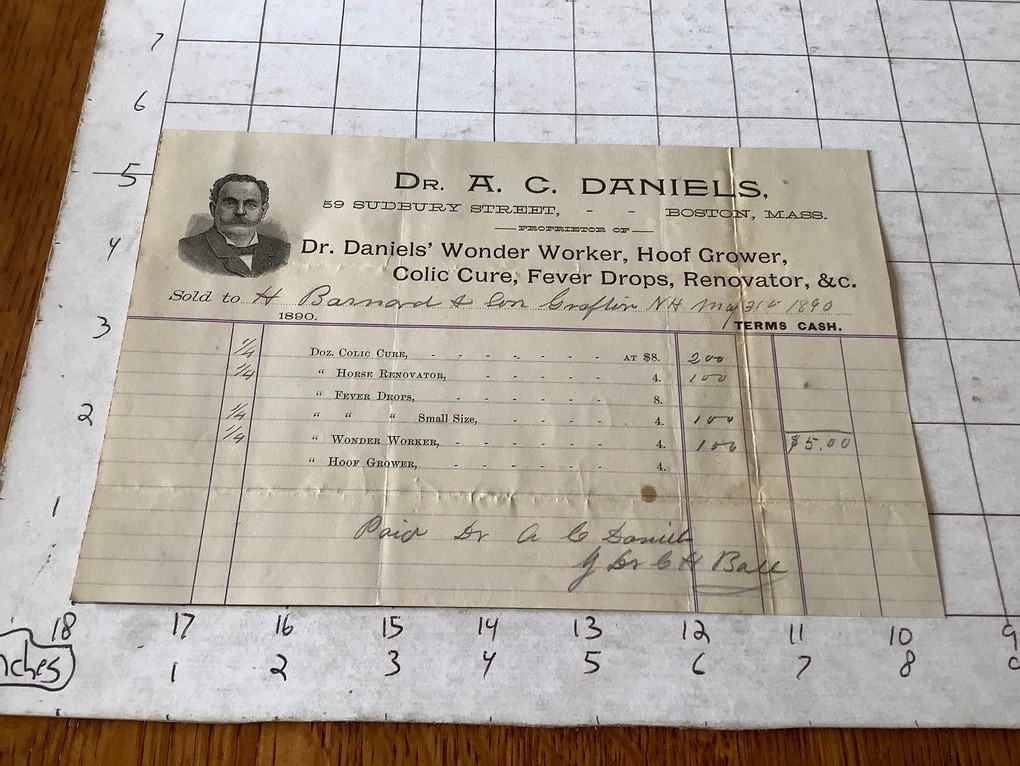 7
6
5
4
3
2
1
DR. A. C. DANIELS,
59 SUDBURY STREET, - - BOSTON, MASS.
PROPRIETOR OF
Dr. Daniels' Wonder Worker, Hoof Grower,
Colic Cure, Fever Drops, Renovator, &c.
Sold to H Barnard & Son Grafton NH May 31st 1890
1890. TERMS CASH.
1/4 DOZ. COLIC CURE, - - - - - - - AT $8. 2 00
1/4 " HORSE RENOVATOR, - - - - - 4. 1 00
" FEVER DROPS, - - - - - - 8.
1/4 " " " Small Size, - - - - 4. 1 00
1/4 " WONDER WORKER, - - - - - - 4. 1 00 $5.00
" HOOF GROWER, - - - - - - 4.
Paid Dr A C Daniel
Dr C H Ball
18 17 16 15 14 13 12 11 10 9
nches 1 2 3 4 5 6 7 8